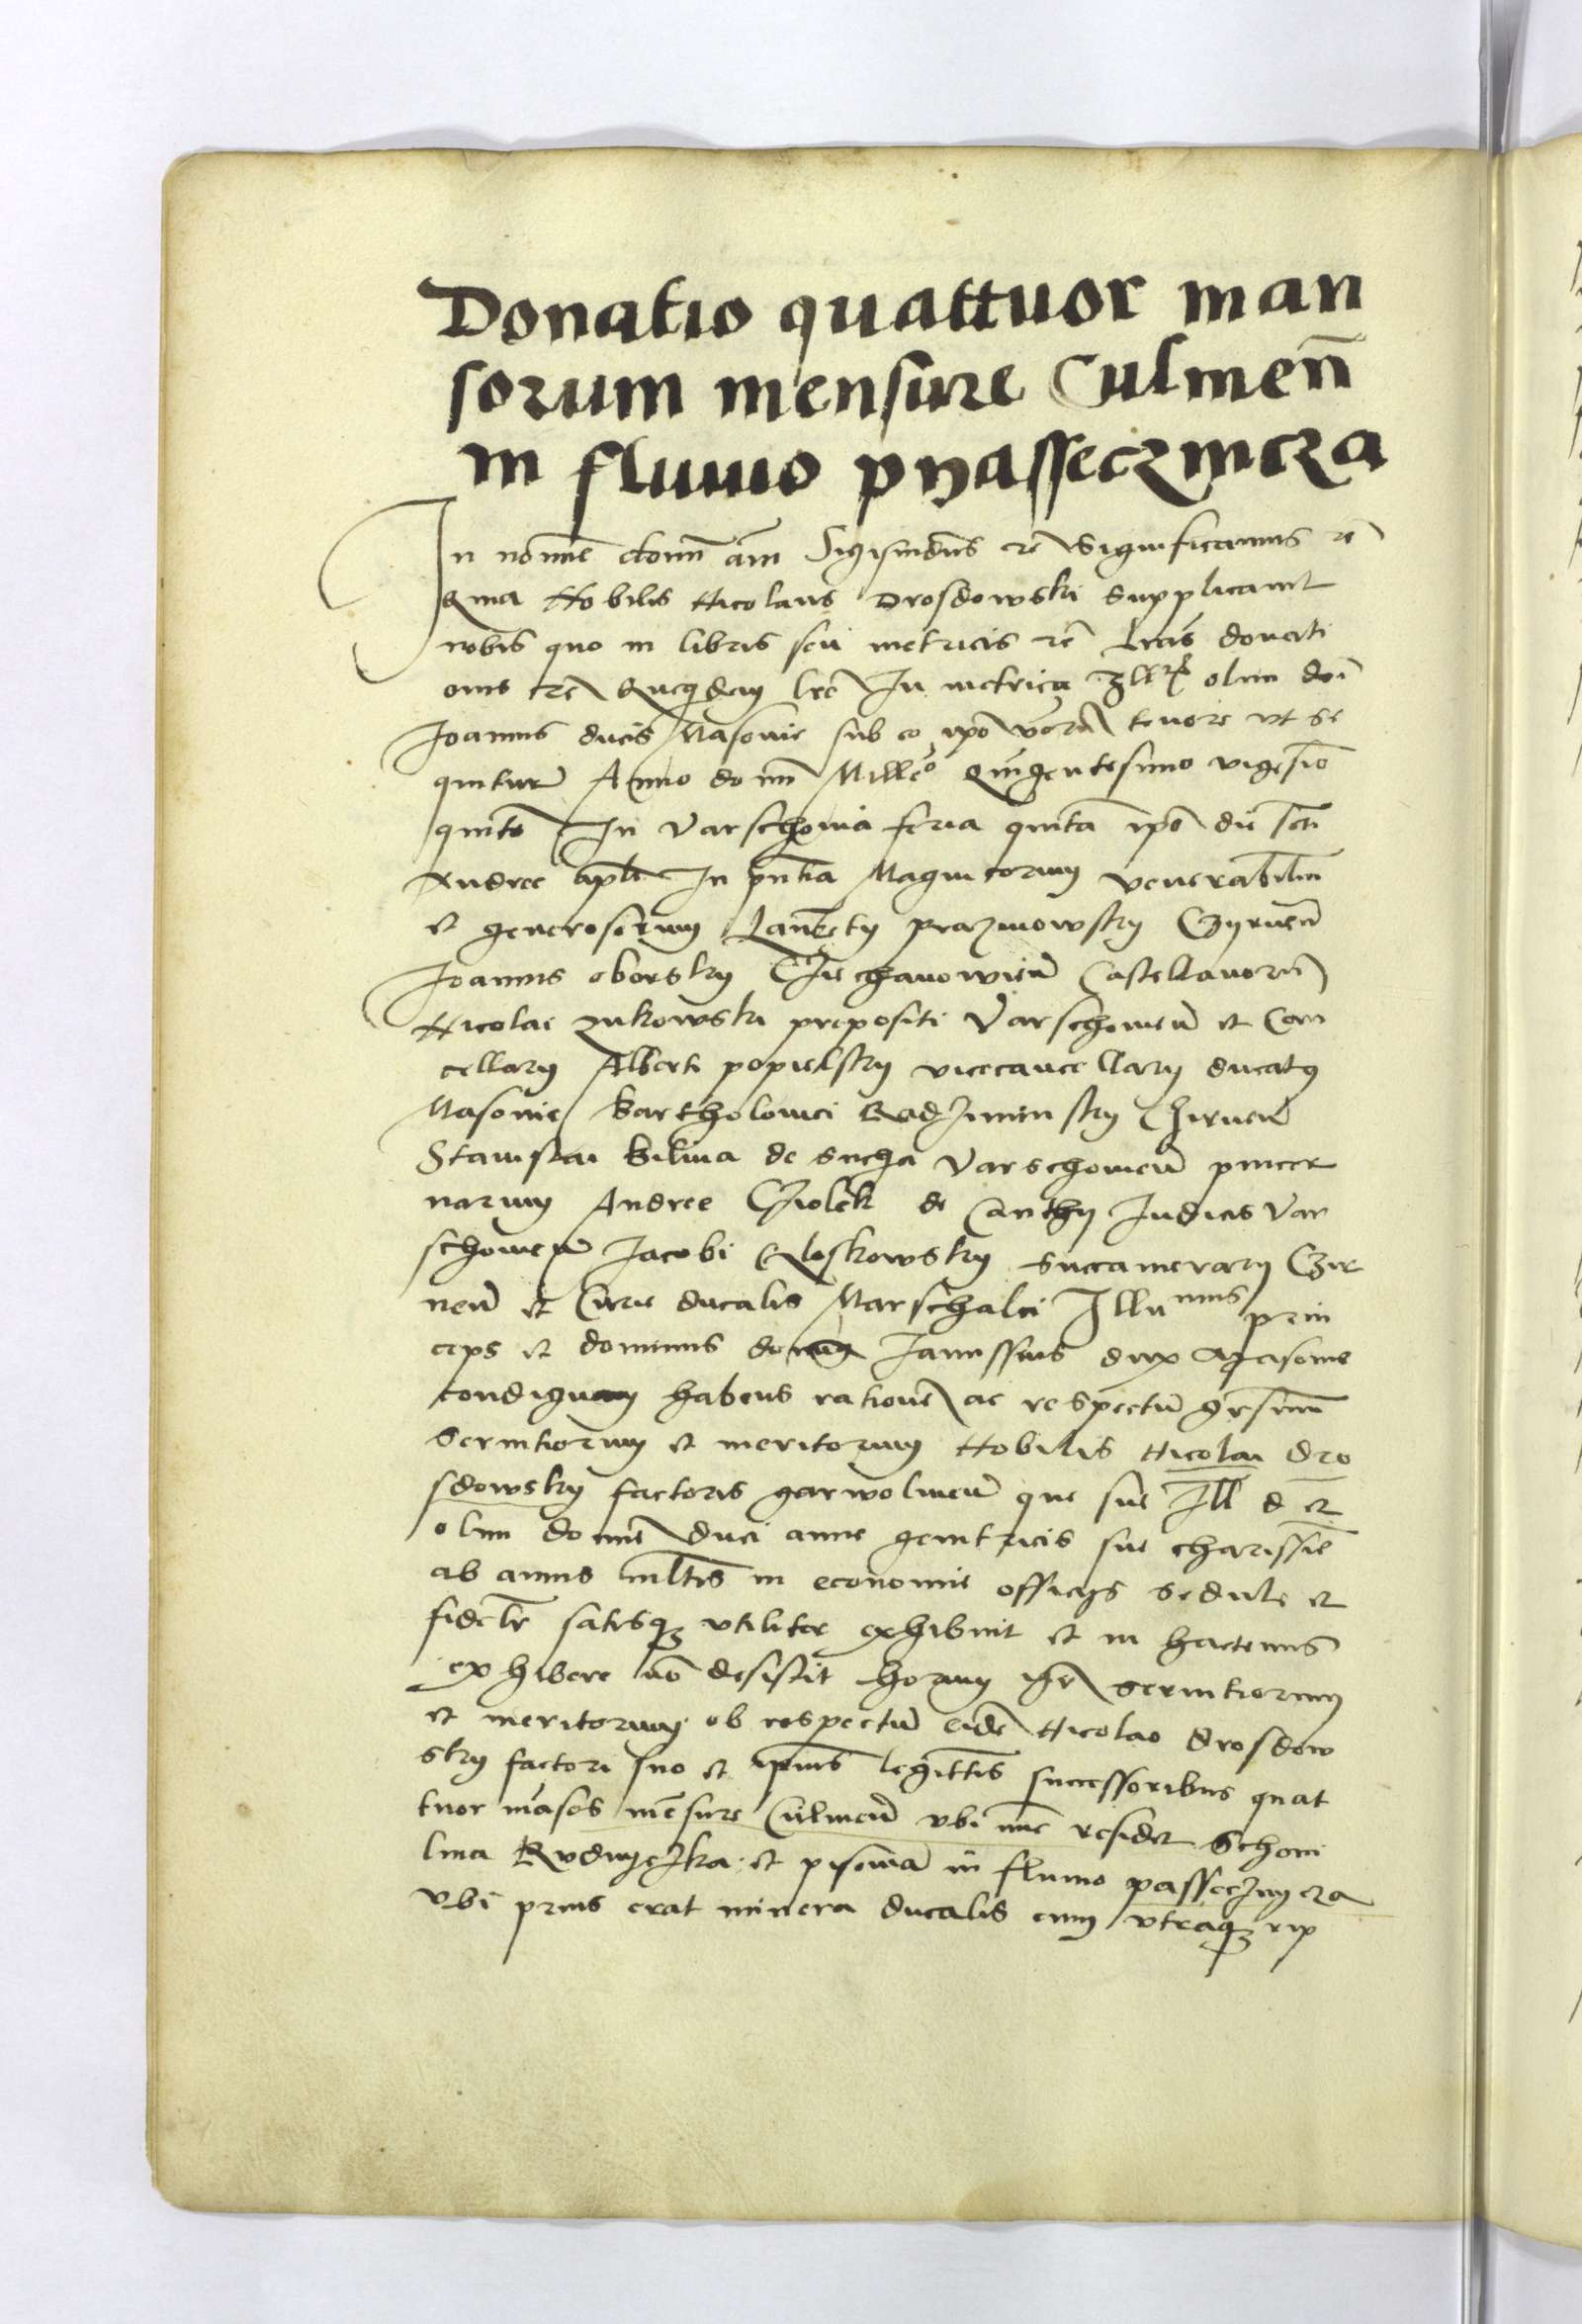 Donatio quattuor man
sorum mensure Culmen̄
in fluuio pyasseczincza
In nomīe domī am̄ Sigismūdus rē Significamus rē
Quia Nobilis Nicolaus Drosdowski supplicauit
nobis quo in libris seu metricis rē Lr̄as donati
onis rē Quequidem lrē In metrica Illr̄ olim dn̄i
Joannis ducis Masouie sub eo ipō verōr tenore vt se
quitur Anno domī Millēo Quingentesimo vigesīo
quinto In Varschouia feria quinta ipō die scti
Andree apl̄i In pn̄tia Magnicorum venerabiliū
et generosorum Laurēty prazmowsky Czyrnen̄
Joannis oborsky Ciechanowien̄ Castellanorū
Nicolai zukowski prepositi Varschouien̄ et Can
cellary Alberti popielsky vicecancellary ducatus
Masouie Bartholomei Radziminsky Czirnen̄
Stanislai Bilina de sucha Varschouien̄ pincer
narum Andree Cziolek de Canthy Iudicis Var
schouien̄ Jacobi Gloskowsky succamerary Czir
nen̄ et Curie ducalis Marschalci Illumus prin
ceps et dominus dominus Janussius dux Masouie
condignam habens rationē ac respectū
seruitiorum et meritorum Nobilis Nicolai Dro
sdowsky factoris garwolinen̄ que sue Ill d et
olim domīe duci anne genitricis sue charissīe
ab annis ml̄tis in economie officijs sedule et
fidelr̄ satisq3 vtiliter exhibuit et in hactenus
exhibere nō desistit horum igr̄ seruitiorum
et meritorum ob respectū eidē Nicolao drosdow
sky factori suo et ipius legittīs successoribus quat
tuor māsos mēsure Culmen̄ vbi nūc residet Schoni
lina Rudnyczka et piscina in fluuio passeczinycza
vbi prius erat minera ducalis cum vtraq3 rip